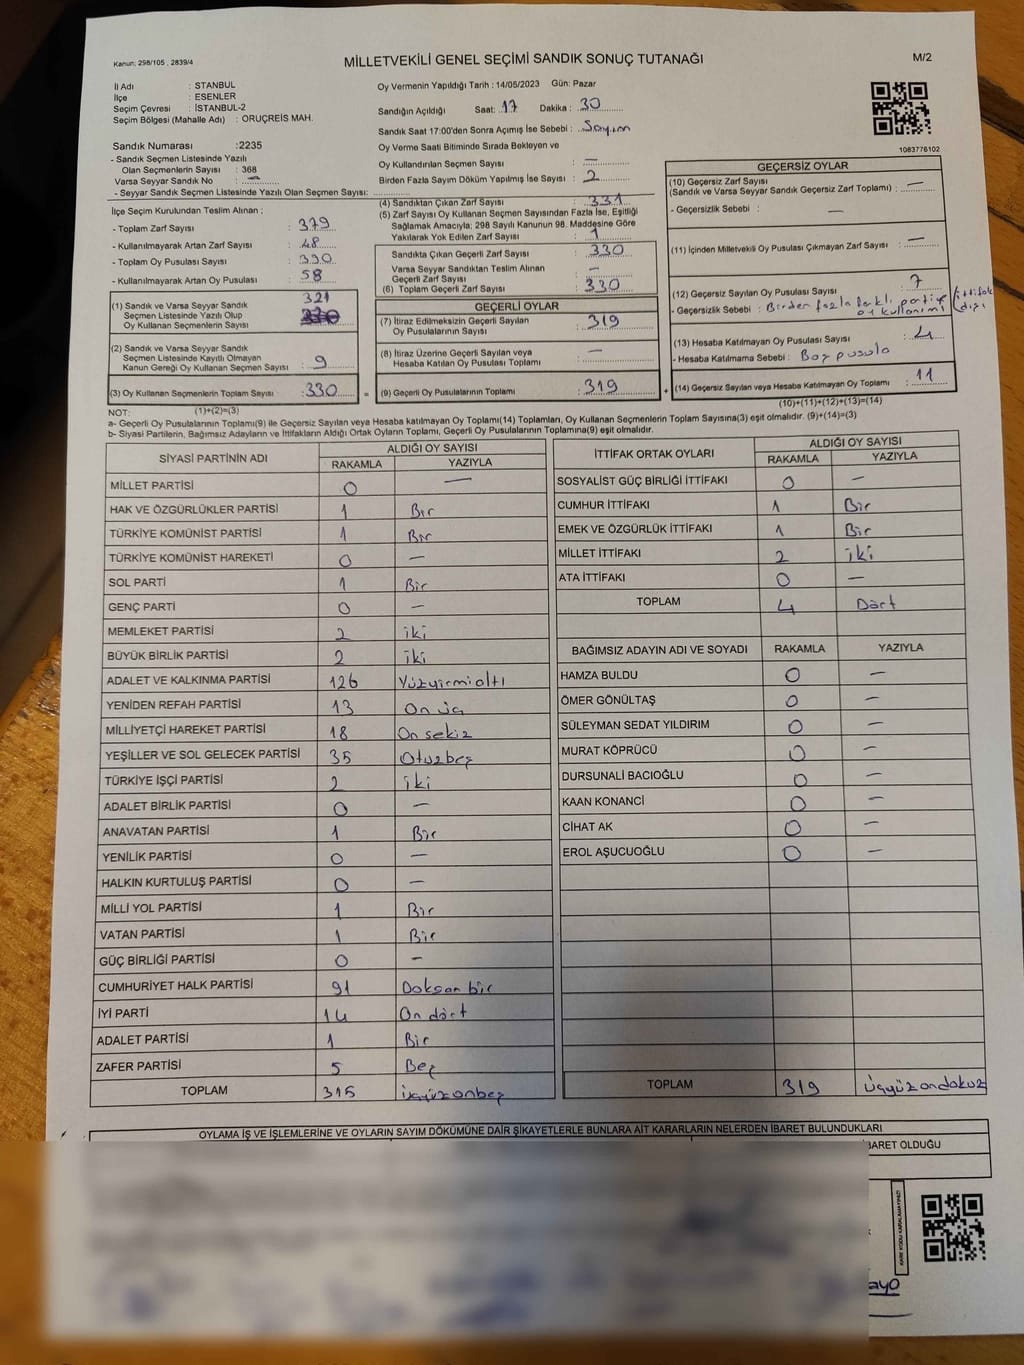 Kanun: 298/105 , 2839/4
MİLLETVEKİLİ GENEL SEÇİMİ SANDIK SONUÇ TUTANAĞI
M/2
İl Adı : STANBUL
İlçe : ESENLER
Seçim Çevresi : İSTANBUL-2
Seçim Bölgesi (Mahalle Adı) : ORUÇREİS MAH.
Oy Vermenin Yapıldığı Tarih : 14/05/2023 Gün: Pazar
Sandığın Açıldığı Saat: 17 Dakika : 30
Sandık Saat 17:00'den Sonra Açımış İse Sebebi : Sayım
Oy Verme Saati Bitiminde Sırada Bekleyen ve
Oy Kullandırılan Seçmen Sayısı : —
Birden Fazla Sayım Döküm Yapılmış İse Sayısı : 2
1083776102
Sandık Numarası :2235
- Sandık Seçmen Listesinde Yazılı
Olan Seçmenlerin Sayısı : 368
Varsa Seyyar Sandık No : —
- Seyyar Sandık Seçmen Listesinde Yazılı Olan Seçmen Sayısı:
İlçe Seçim Kurulundan Teslim Alınan ;
- Toplam Zarf Sayısı : 379
- Kullanılmayarak Artan Zarf Sayısı : 48
- Toplam Oy Pusulası Sayısı : 390
- Kullanılmayarak Artan Oy Pusulası : 58
(1) Sandık ve Varsa Seyyar Sandık
Seçmen Listesinde Yazılı Olup
Oy Kullanan Seçmenlerin Sayısı : 321
(2) Sandık ve Varsa Seyyar Sandık
Seçmen Listesinde Kayıtlı Olmayan
Kanun Gereği Oy Kullanan Seçmen Sayısı : 9
(3) Oy Kullanan Seçmenlerin Toplam Sayısı : 330
(4) Sandıktan Çıkan Zarf Sayısı : 331
(5) Zarf Sayısı Oy Kullanan Seçmen Sayısından Fazla İse, Eşitliği
Sağlamak Amacıyla; 298 Sayılı Kanunun 98. Maddesine Göre
Yakılarak Yok Edilen Zarf Sayısı : 1
Sandıkta Çıkan Geçerli Zarf Sayısı : 330
Varsa Seyyar Sandıktan Teslim Alınan
Geçerli Zarf Sayısı : —
(6) Toplam Geçerli Zarf Sayısı : 330
GEÇERLİ OYLAR
(7) İtiraz Edilmeksizin Geçerli Sayılan
Oy Pusulalarının Sayısı : 319
(8) İtiraz Üzerine Geçerli Sayılan veya
Hesaba Katılan Oy Pusulası Toplamı : —
= (9) Geçerli Oy Pusulalarının Toplamı : 319 +
GEÇERSİZ OYLAR
(10) Geçersiz Zarf Sayısı
(Sandık ve Varsa Seyyar Sandık Geçersiz Zarf Toplamı) : —
- Geçersizlik Sebebi : —
(11) İçinden Milletvekili Oy Pusulası Çıkmayan Zarf Sayısı : —
(12) Geçersiz Sayılan Oy Pusulası Sayısı : 7
- Geçersizlik Sebebi : Birden fazla farklı partiye (ittifak
oy kullanımı dışı)
(13) Hesaba Katılmayan Oy Pusulası Sayısı : 4
- Hesaba Katılmama Sebebi : Boş pusula
(14) Geçersiz Sayılan veya Hesaba Katılmayan Oy Toplamı : 11
(10)+(11)+(12)+(13)=(14)
NOT: (1)+(2)=(3)
a- Geçerli Oy Pusulalarının Toplamı(9) ile Geçersiz Sayılan veya Hesaba katılmayan Oy Toplamı(14) Toplamları, Oy Kullanan Seçmenlerin Toplam Sayısına(3) eşit olmalıdır. (9)+(14)=(3)
b- Siyasi Partilerin, Bağımsız Adayların ve İttifakların Aldığı Ortak Oyların Toplamı, Geçerli Oy Pusulalarının Toplamına(9) eşit olmalıdır.
SİYASİ PARTİNİN ADI ALDIĞI OY SAYISI
RAKAMLA YAZIYLA
MİLLET PARTİSİ 0 —
HAK VE ÖZGÜRLÜKLER PARTİSİ 1 Bir
TÜRKİYE KOMÜNİST PARTİSİ 1 Bir
TÜRKİYE KOMÜNİST HAREKETİ 0 —
SOL PARTİ 1 Bir
GENÇ PARTİ 0 —
MEMLEKET PARTİSİ 2 iki
BÜYÜK BİRLİK PARTİSİ 2 iki
ADALET VE KALKINMA PARTİSİ 126 Yüzyirmialtı
YENİDEN REFAH PARTİSİ 13 On üç
MİLLİYETÇİ HAREKET PARTİSİ 18 On sekiz
YEŞİLLER VE SOL GELECEK PARTİSİ 35 Otuzbeş
TÜRKİYE İŞÇİ PARTİSİ 2 iki
ADALET BİRLİK PARTİSİ 0 —
ANAVATAN PARTİSİ 1 Bir
YENİLİK PARTİSİ 0 —
HALKIN KURTULUŞ PARTİSİ 0 —
MİLLİ YOL PARTİSİ 1 Bir
VATAN PARTİSİ 1 Bir
GÜÇ BİRLİĞİ PARTİSİ 0 —
CUMHURİYET HALK PARTİSİ 91 Doksan bir
İYİ PARTİ 14 On dört
ADALET PARTİSİ 1 Bir
ZAFER PARTİSİ 5 Beş
TOPLAM 315 üçyüzonbeş
İTTİFAK ORTAK OYLARI ALDIĞI OY SAYISI
RAKAMLA YAZIYLA
SOSYALİST GÜÇ BİRLİĞİ İTTİFAKI 0 —
CUMHUR İTTİFAKI 1 Bir
EMEK VE ÖZGÜRLÜK İTTİFAKI 1 Bir
MİLLET İTTİFAKI 2 iki
ATA İTTİFAKI 0 —
TOPLAM 4 Dört
BAĞIMSIZ ADAYIN ADI VE SOYADI RAKAMLA YAZIYLA
HAMZA BULDU 0 —
ÖMER GÖNÜLTAŞ 0 —
SÜLEYMAN SEDAT YILDIRIM 0 —
MURAT KÖPRÜCÜ 0 —
DURSUNALİ BACIOĞLU 0 —
KAAN KONANCİ 0 —
CİHAT AK 0 —
EROL AŞUCUOĞLU 0 —
TOPLAM 319 üçyüzondokuz
OYLAMA İŞ VE İŞLEMLERİNE VE OYLARIN SAYIM DÖKÜMÜNE DAİR ŞİKAYETLERLE BUNLARA AİT KARARLARIN NELERDEN İBARET BULUNDUKLARI
BARET OLDUĞU
KARE KODU KARALAMAYINIZ!